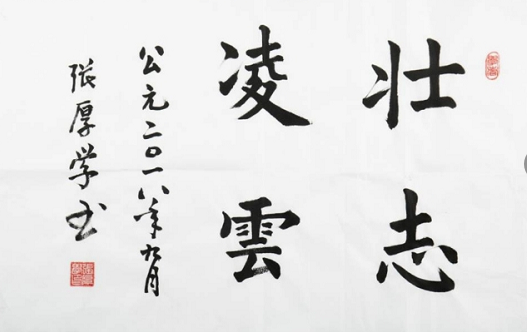 壮志
凌雲
公元二〇一八年九月
张厚学书